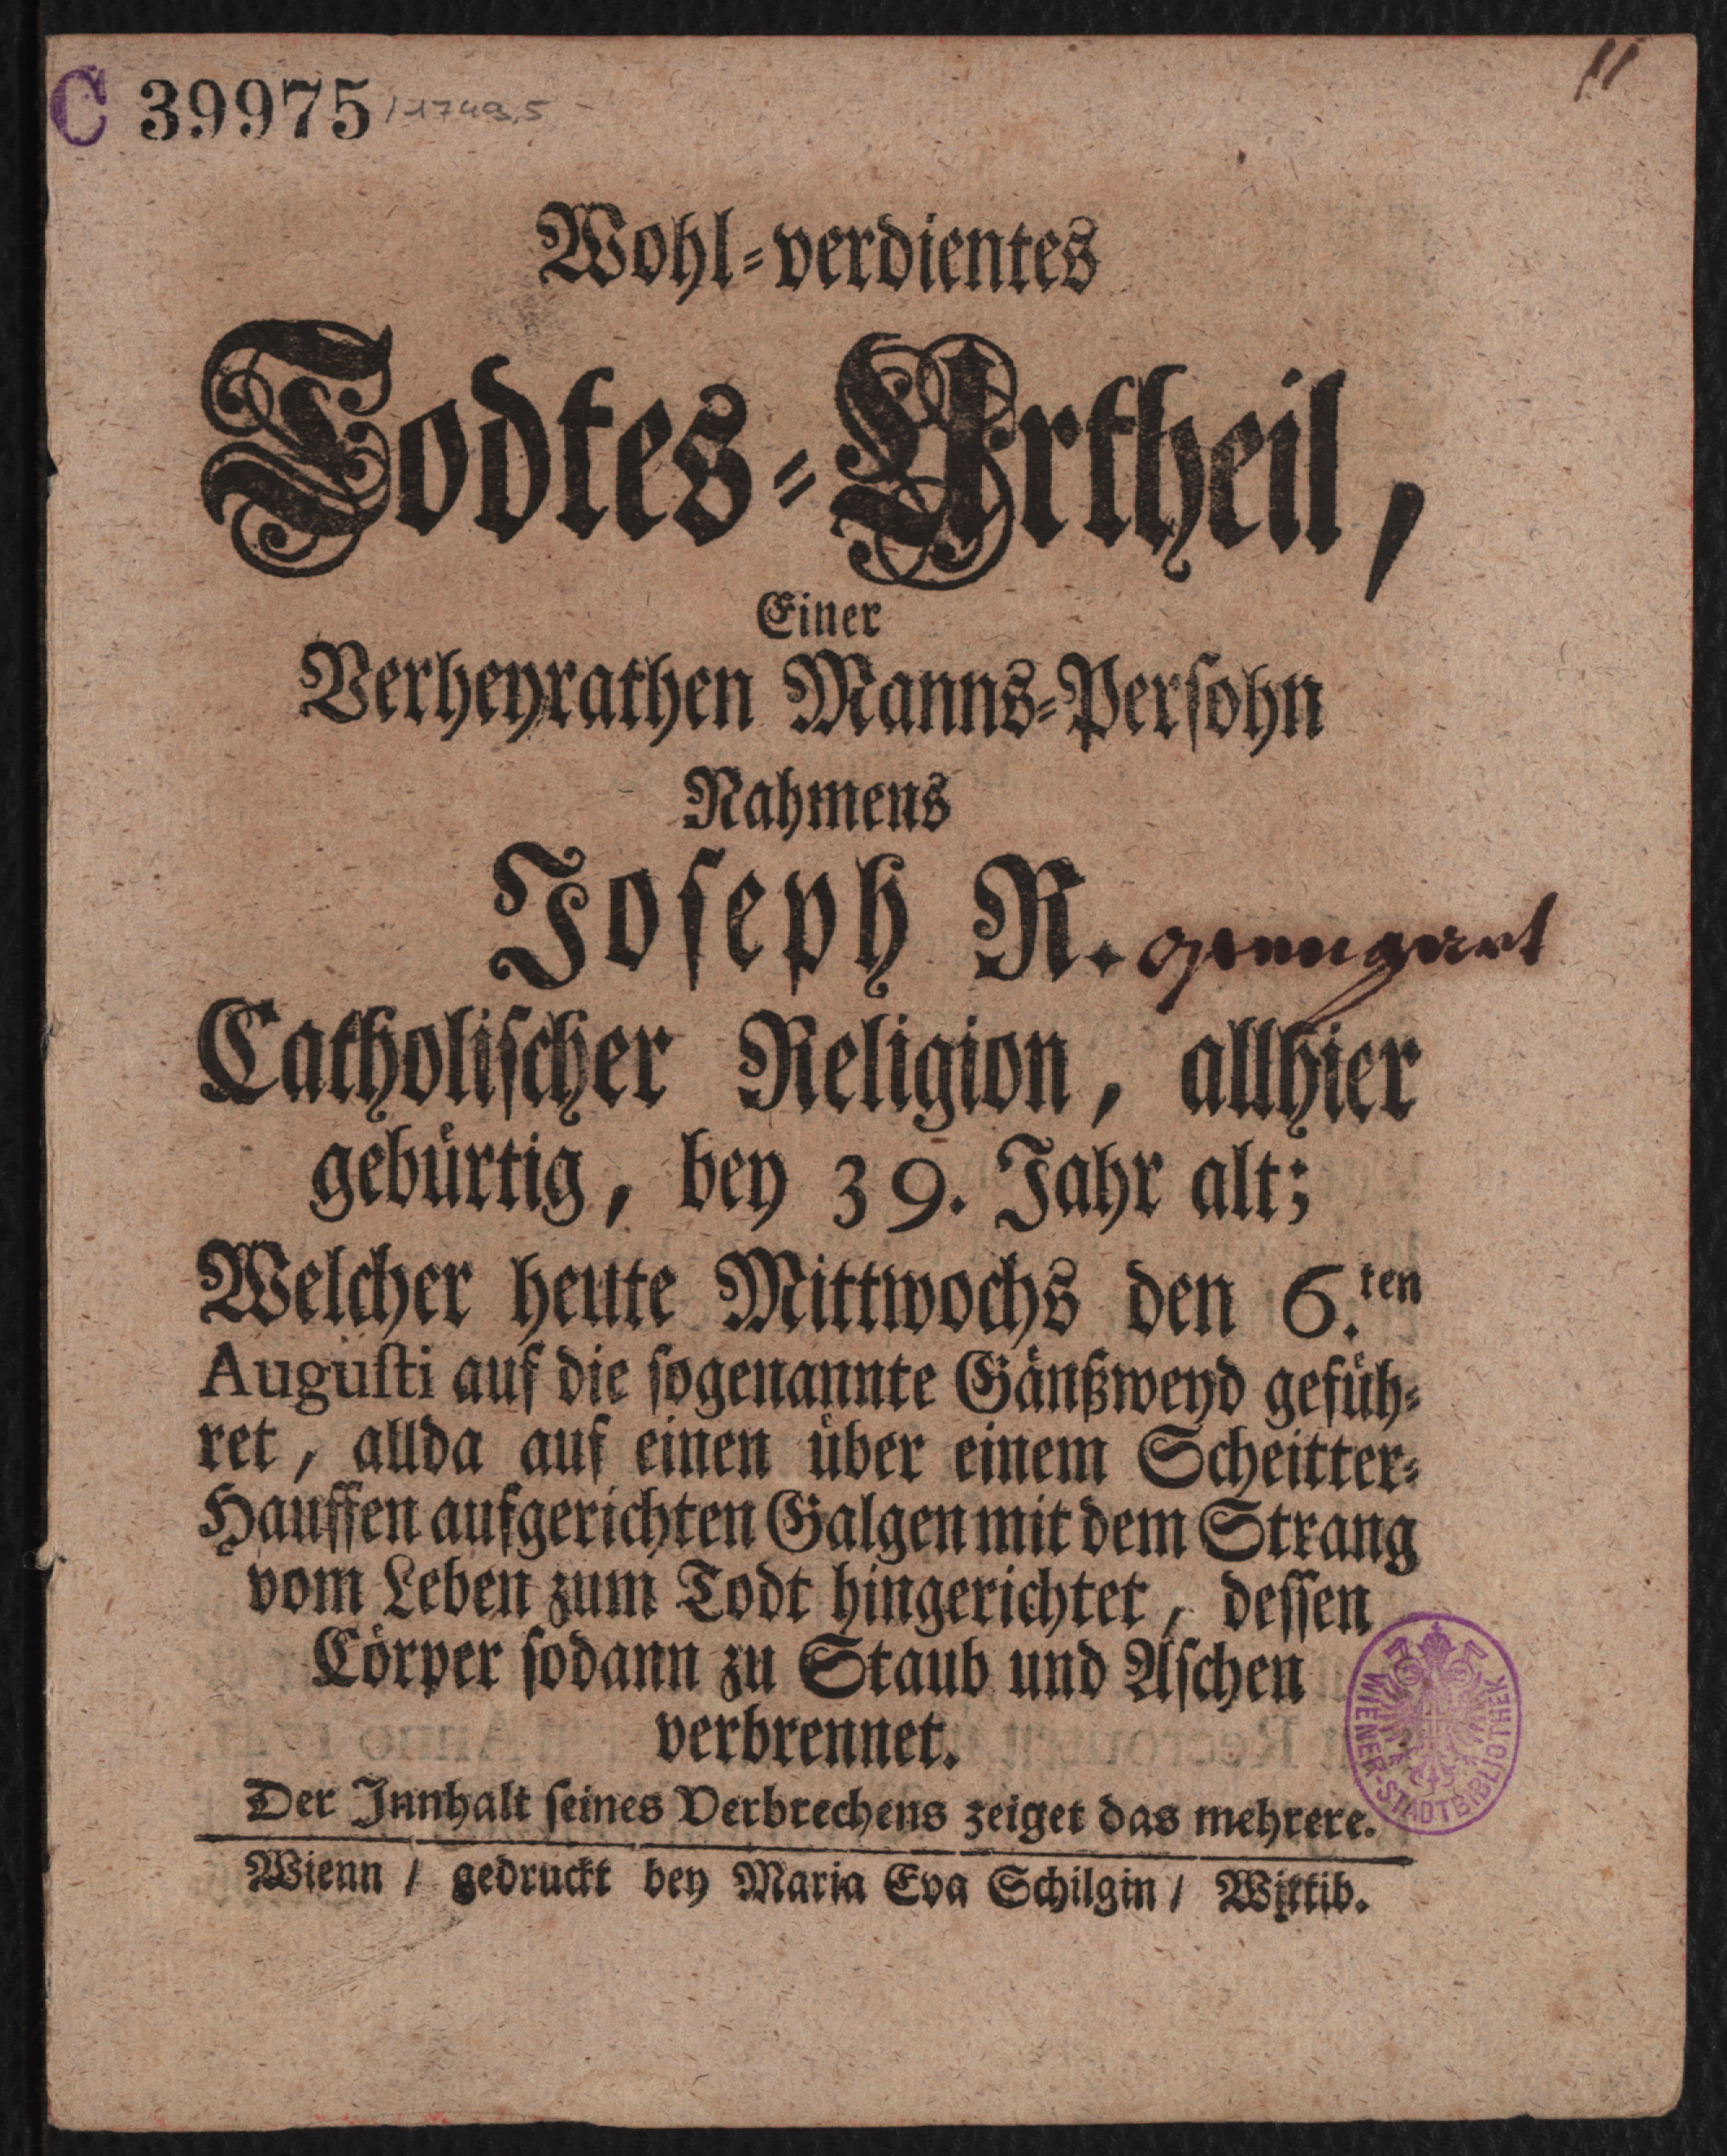 C 39975 / 1749,5
11
Wohl-verdientes
Todtes-Urtheil,
Einer
Verheyrathen Manns-Persohn
Nahmens
Joseph R.
Catholischer Religion, allhier
gebürtig, bey 39. Jahr alt;
Welcher heute Mittwochs den 6.ten
Augusti auf die sogenannte Gänßweyd gefüh-
ret, allda auf einen über einem Scheitter-
Hauffen aufgerichten Galgen mit dem Strang
vom Leben zum Todt hingerichtet, dessen
Cörper sodann zu Staub und Aschen
verbrennet.
Der Innhalt seines Verbrechens zeiget das mehrere.
Wienn / gedruckt bey Maria Eva Schilgin / Wittib.
WIENER-STADTBIBLIOTHEK